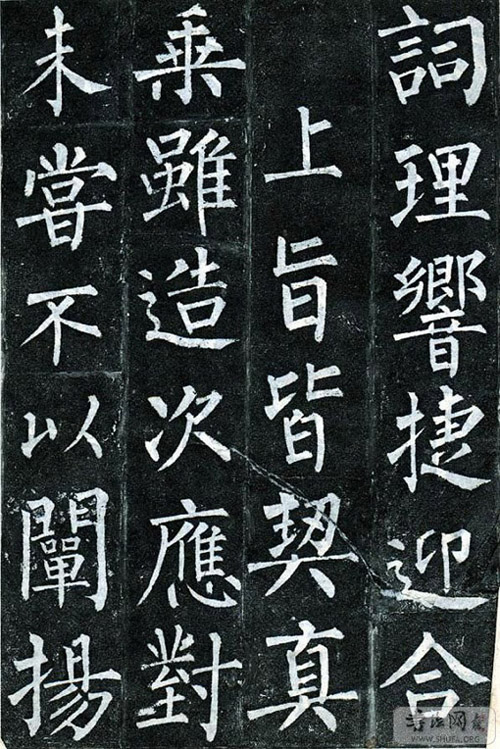 詞理響捷迎合
上旨皆契真
乗雖造次應對
未甞不以闡揚
书法网
WWW.SHUFA.ORG